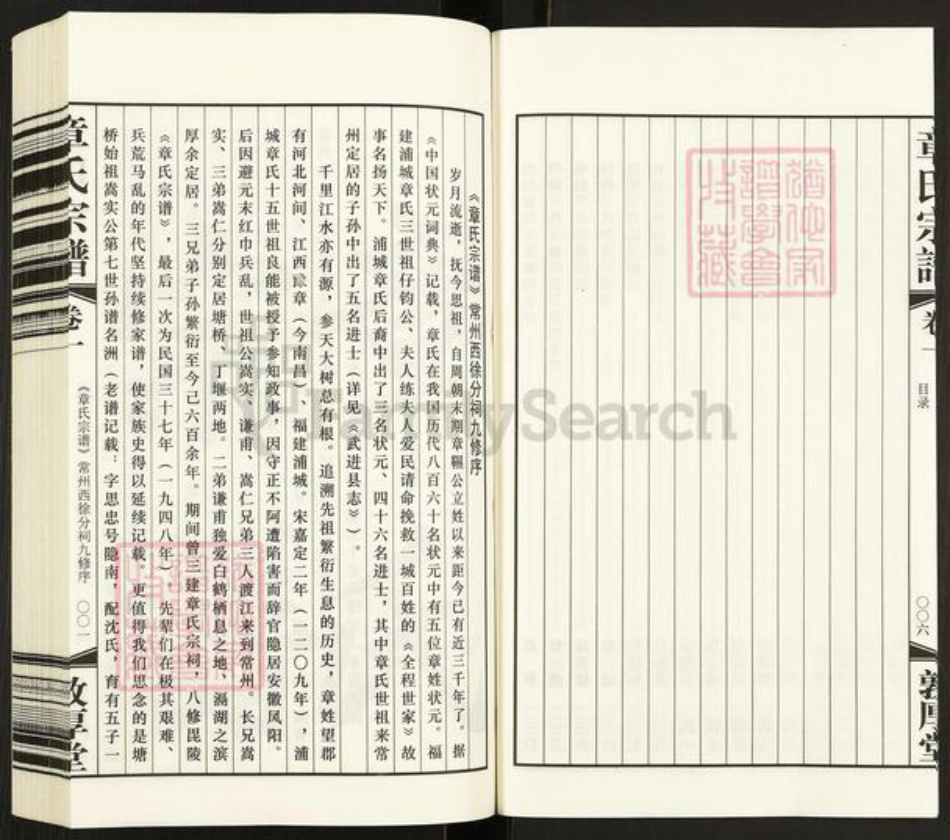 章氏宗譜
卷一
目录
〇〇六
敦厚堂
《章氏宗谱》常州西徐分祠九修序
岁月流逝，抚今思祖，自周朝末期章韅公立姓以来距今已有近三千年了。据
《中国状元词典》记载，章氏在我国历代八百六十名状元中有五位章姓状元。福
建浦城章氏三世祖仔钧公、夫人练夫人爱民请命挽救一城百姓的《全程世家》故
事名扬天下。浦城章氏后裔中出了三名状元、四十六名进士，其中章氏世祖来常
州定居的子孙中出了五名进士（详见《武进县志》）。
千里江水亦有源，参天大树总有根。追溯先祖繁衍生息的历史，章姓望郡
有河北河间、江西豫章（今南昌）、福建浦城。宋嘉定二年（一二〇九年），浦
城章氏十五世祖良能被授予参知政事，因守正不阿遭陷害而辞官隐居安徽凤阳。
后因避元末红巾兵乱，世祖公嵩实、谦甫、嵩仁兄弟三人渡江来到常州。长兄嵩
实、三弟嵩仁分别定居塘桥、丁堰两地。二弟谦甫独爱白鹤栖息之地、滆湖之滨
厚余定居。三兄弟子孙繁衍至今已六百余年。期间曾三建章氏宗祠，八修毘陵
《章氏宗谱》，最后一次为民国三十七年（一九四八年）。先辈们在极其艰难、
兵荒马乱的年代坚持续修家谱，使家族史得以延续记载。更值得我们思念的是塘
桥始祖嵩实公第七世孙谱名洲（老谱记载：字思忠号隐南，配沈氏，育有五子一
章氏宗譜
卷一
《章氏宗谱》常州西徐分祠九修序
〇〇一
敦厚堂
FamilySearch